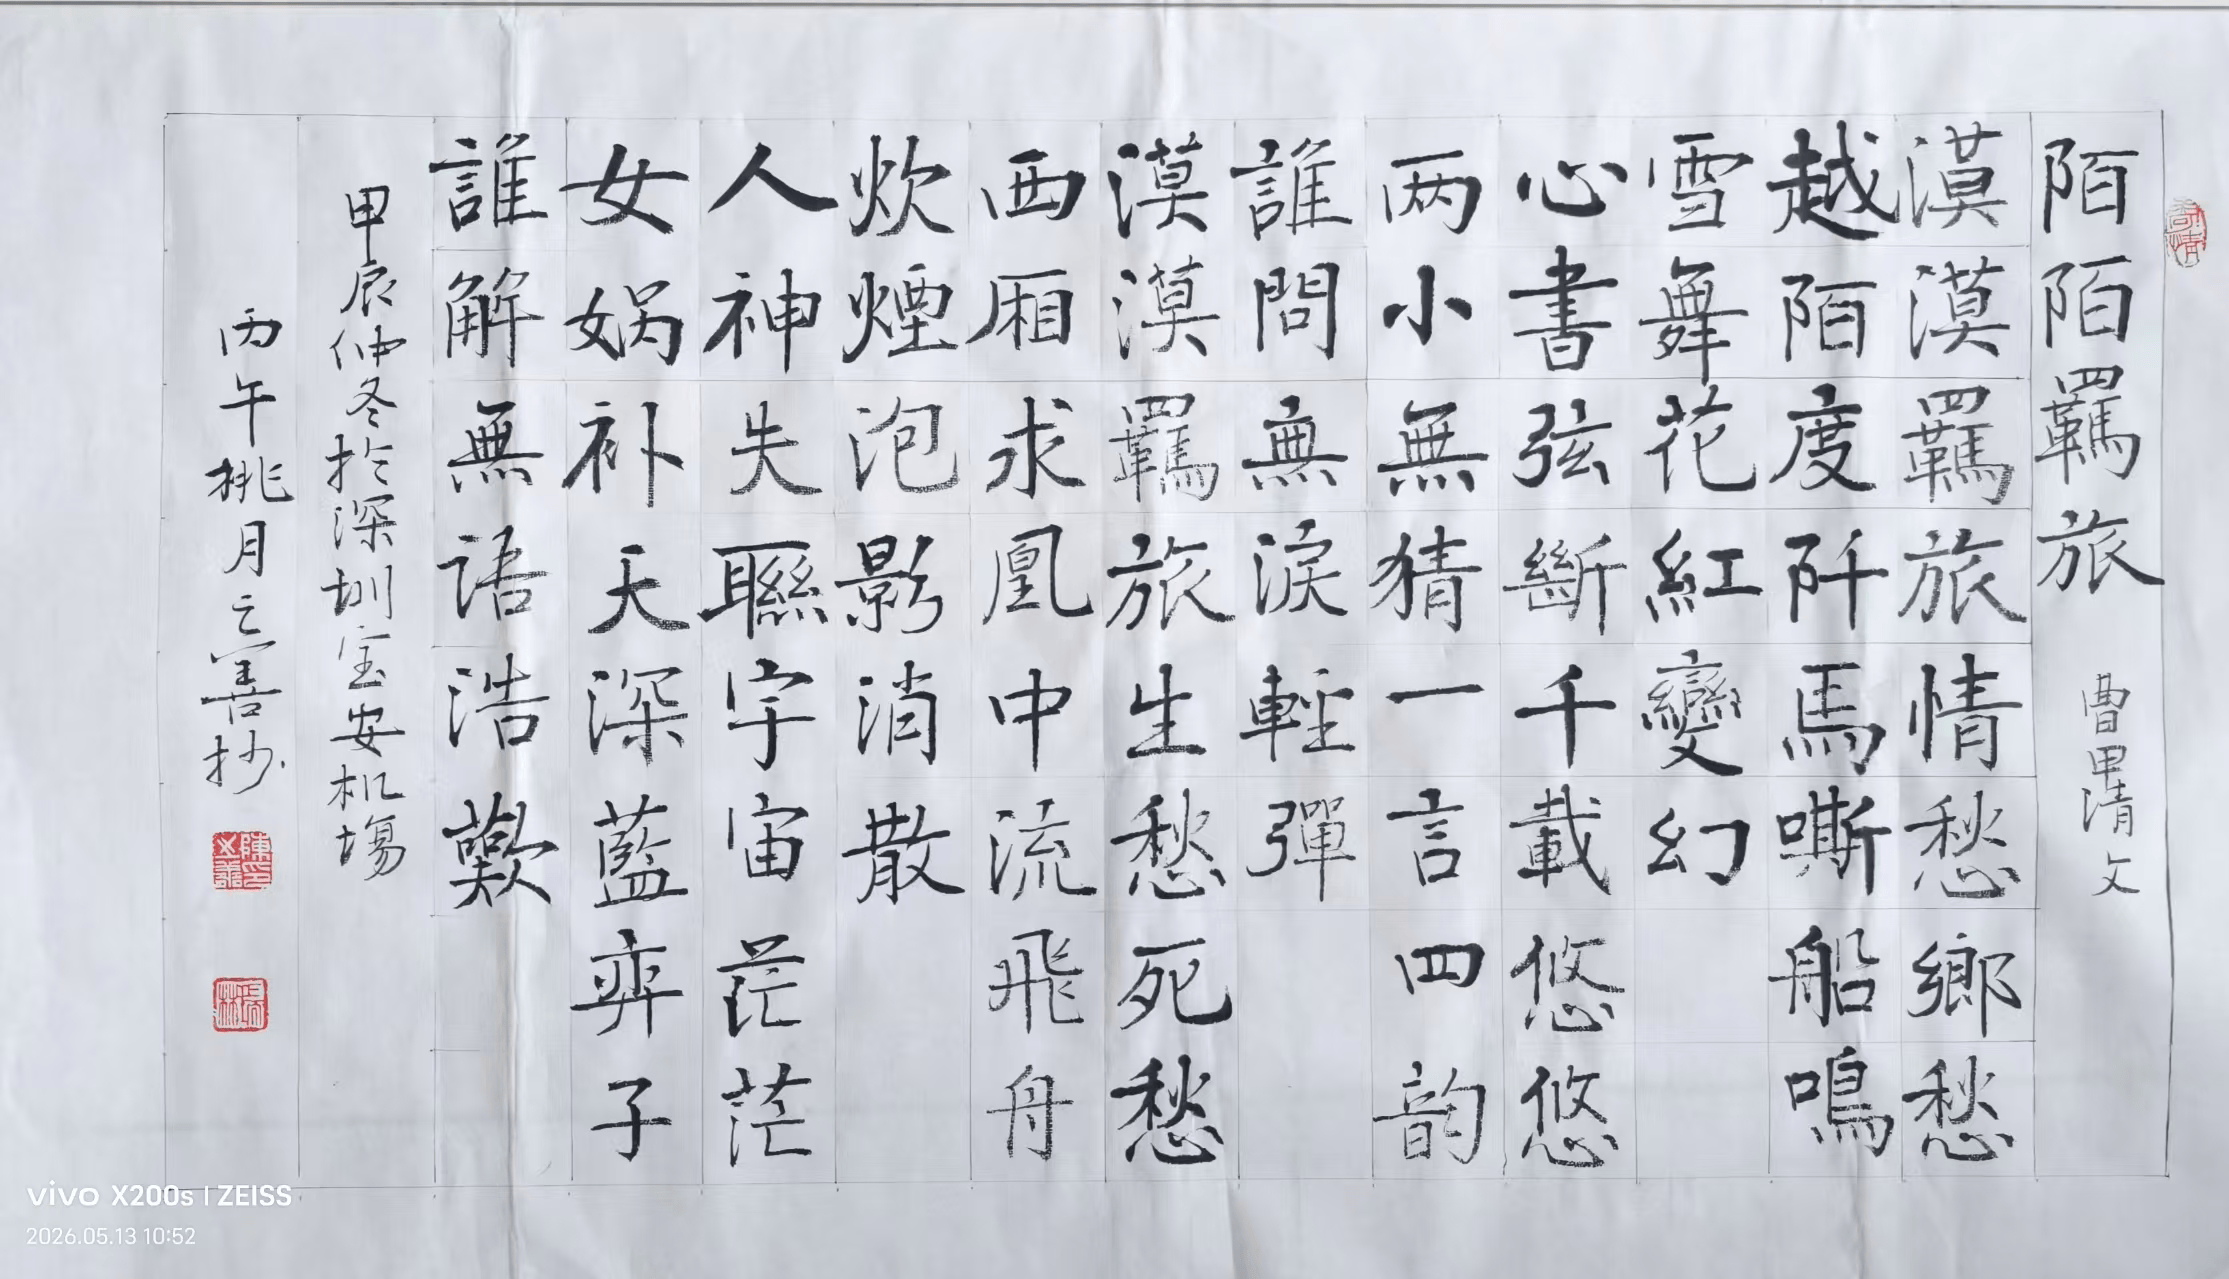 陌陌羈旅 曹甲清文
漠漠羈旅情愁鄉愁
越陌度阡馬嘶船鳴
雪舞花紅變幻
心書弦斷千載悠悠
两小無猜一言四韵
誰問無淚輕彈
漠漠羈旅生愁死愁
西厢求凰中流飛舟
炊煙泡影消散
人神失聯宇宙茫茫
女娲补天深藍弈子
誰解無语浩歎
甲辰仲冬於深圳宝安机場
丙午桃月之善抄
vivo X200s | ZEISS
2026.05.13 10:52